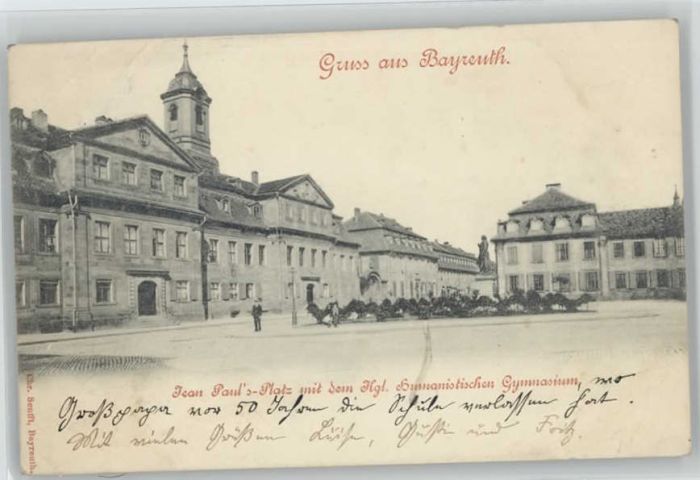 Gruss aus Bayreuth.
Jean Paul's-Platz mit dem Kgl. Humanistischen Gymnasium, wo
Großpapa vor 50 Jahren die Schule verlassen hat.
Mit vielen Grüßen Luise, Gustin und Fritz.
Chr. Senfft, Bayreuth.